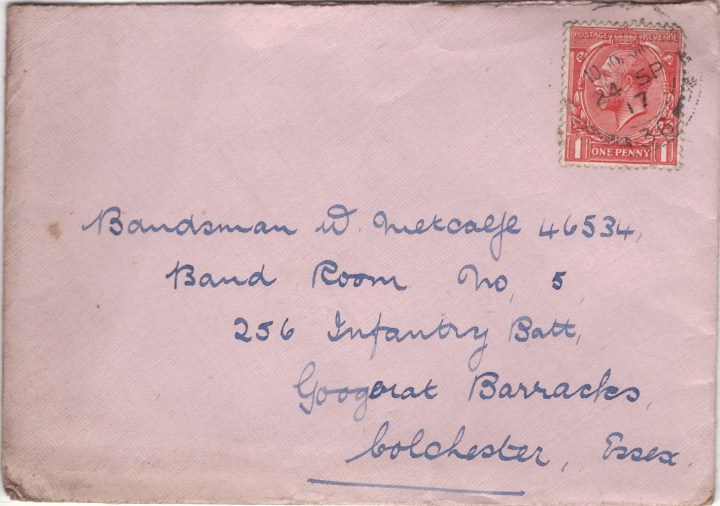 POSTAGE REVENUE
24 SP
17
38
1 ONE PENNY 1
Bandsman W. Metcalfe 46534,
Band Room No, 5
256 Infantry Batt,
Googorat Barracks,
Colchester, Essex,